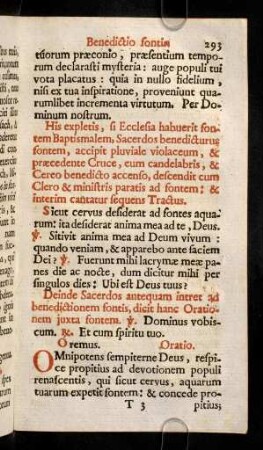 Benedictio fontis 293
ctiorum præconio, præsentium tempo-
rum declarasti mysteria: auge populi tui
vota placatus: quia in nullo fidelium,
nisi ex tua inspiratione, proveniunt qua-
rumlibet incrementa virtutum. Per Do-
minum nostrum.
His expletis, si Ecclesia habuerit fon-
tem Baptismalem, Sacerdos benedicturus
fontem, accipit pluviale violaceum, &
præcedente Cruce, cum candelabris, &
Cereo benedicto accenso, descendit cum
Clero & ministris paratis ad fontem: &
interim cantatur sequens Tractus.
Sicut cervus desiderat ad fontes aqua-
rum: ita desiderat anima mea ad te, Deus.
℣. Sitivit anima mea ad Deum vivum:
quando veniam, & apparebo ante faciem
Dei? ℣. Fuerunt mihi lacrymæ meæ pa-
nes die ac nocte, dum dicitur mihi per
singulos dies: Ubi est Deus tuus?
Deinde Sacerdos antequam intret ad
benedictionem fontis, dicit hanc Oratio-
nem juxta fontem. ℣. Dominus vobis-
cum. ℟. Et cum spiritu tuo.
Oremus. Oratio.
OMnipotens sempiterne Deus, respi-
ce propitius ad devotionem populi
renascentis, qui sicut cervus, aquarum
tuarum expetit fontem: & concede pro-
T 3 pitius;